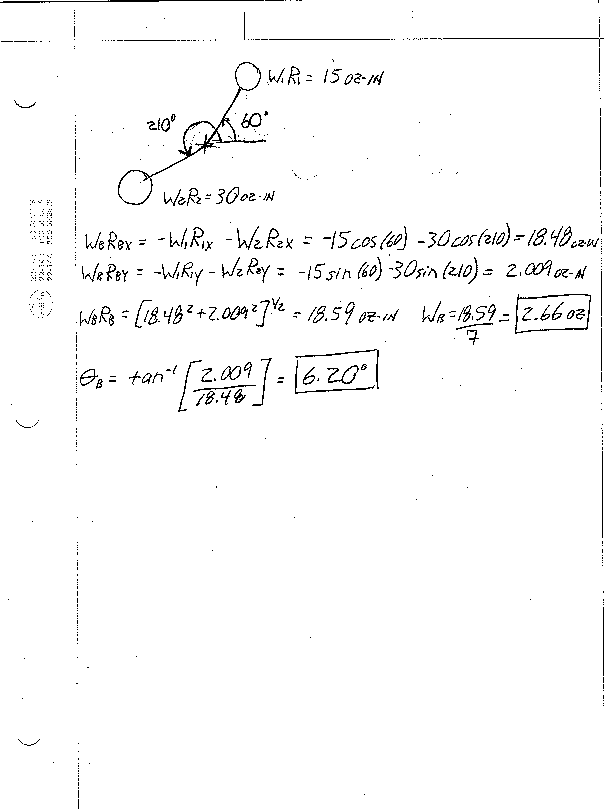 W₁R₁ = 15 OZ-IN
210°
60°
W₂R₂ = 30 OZ-IN
W_BR_BX = -W₁R₁X - W₂R₂X = -15cos(60) - 30cos(210) = 18.48 OZ-IN
W_BR_BY = -W₁R₁Y - W₂R₂Y = -15sin(60) - 30sin(210) = 2.009 OZ-IN
W_BR_B = [18.48² + 2.009²]^1/2 = 18.59 OZ-IN W_B = 18.59/7 = 2.66 OZ
θ_B = tan⁻¹ [2.009/18.48] = 6.20°